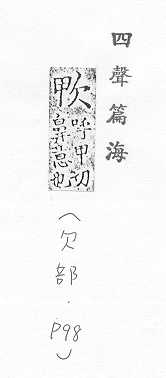 四聲篇海
㰺呼甲切
鼻息也
(欠部.p98)